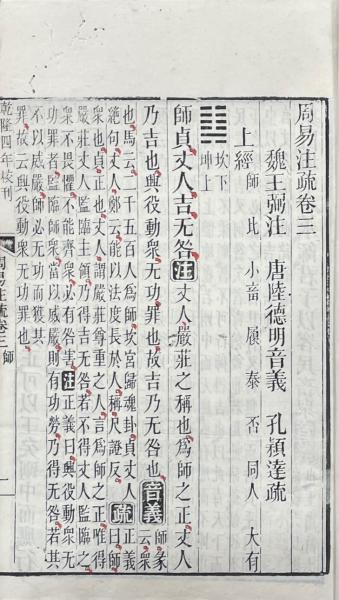 周易注疏卷三
魏王弼注 唐陸德明音義 孔穎達疏
上經 師 比 小畜 履 泰 否 同人 大有
䷆ 坎下
坤上
師貞丈人吉无咎注丈人嚴莊之稱也爲師之正丈人
乃吉也興役動衆无功罪也故吉乃无咎也音義師彖
云衆
也馬云二千五百人爲師坎宮歸魂卦貞丈人
絶句丈人鄭云能以法度長於人稱尺證反
疏正義
曰師
衆也貞正也丈人謂嚴莊尊重之人言爲師之正唯得
嚴莊丈人監臨主領乃得吉无咎若不得丈人監臨之
衆不畏懼不能齊衆必有咎害注正義曰興役動衆无
功罪者監臨師衆當以威嚴則有功勞乃得无咎若其
不以威嚴師必无功而獲其
罪故云興役動衆无功罪也
乾隆四年校刊
周易注疏卷三 師
一